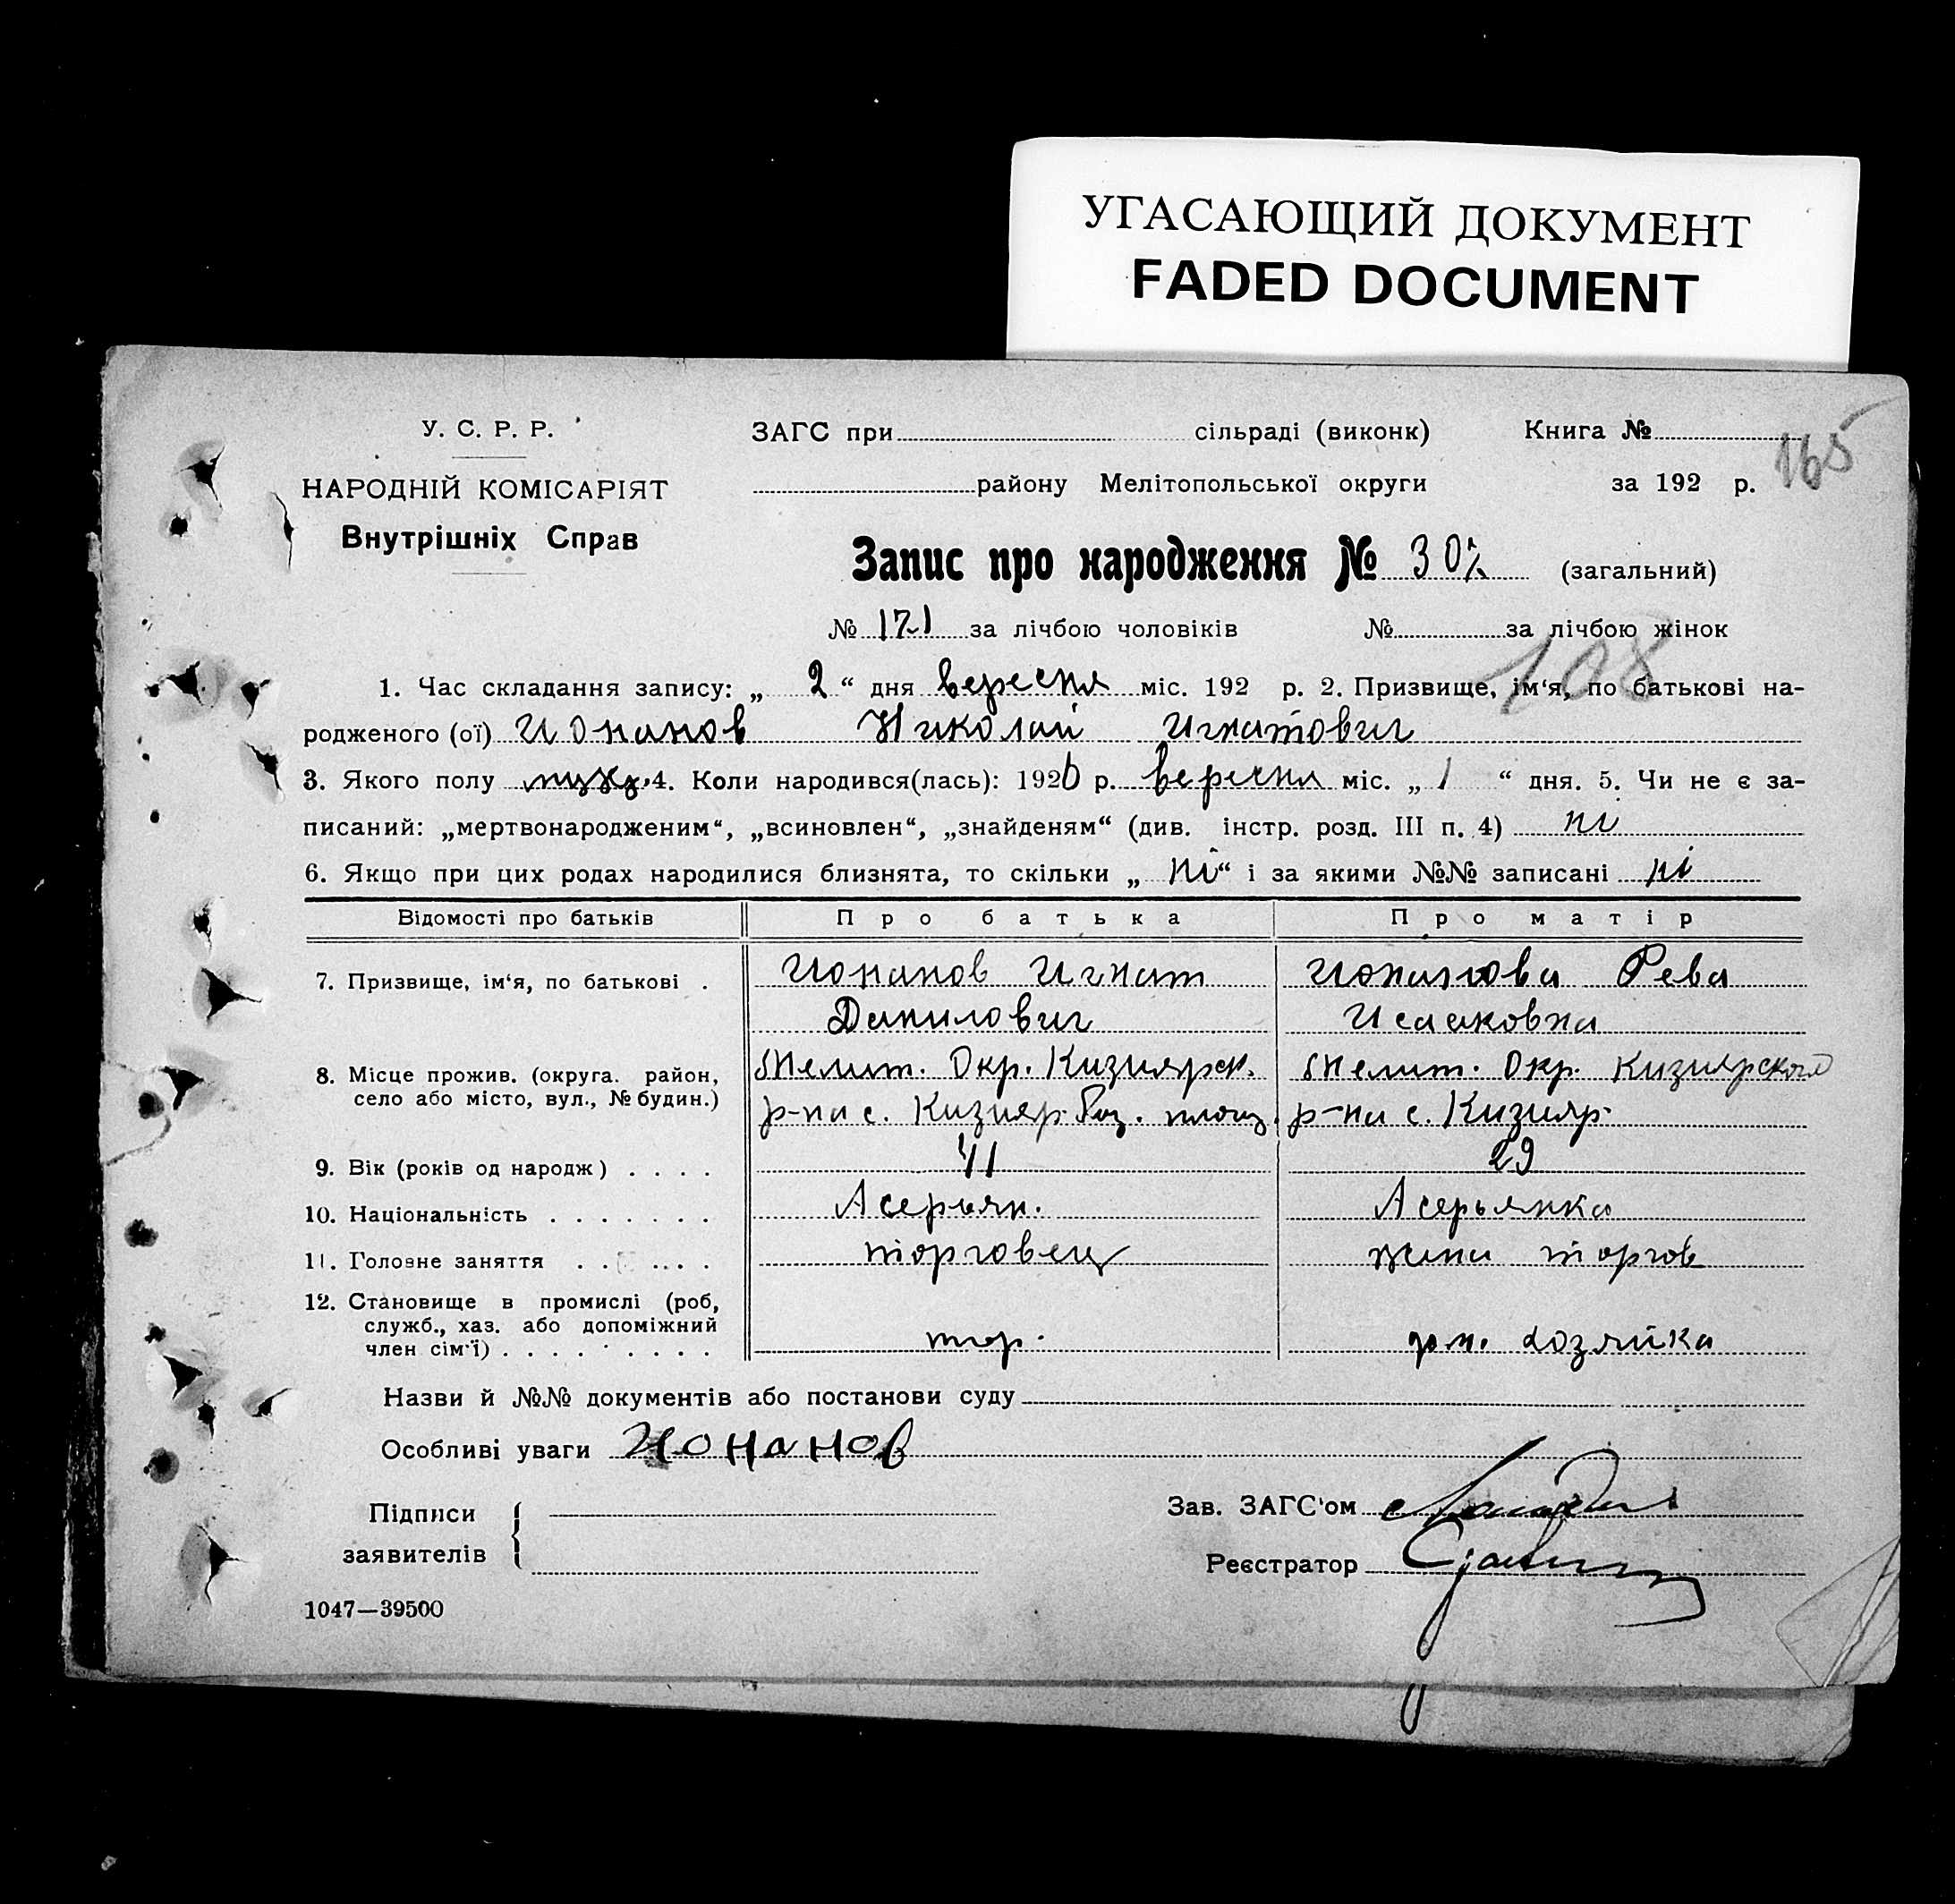 УГАСАЮЩИЙ ДОКУМЕНТ
FADED DOCUMENT
У. С. Р. Р.
НАРОДНІЙ КОМІСАРІЯТ
Внутрішніх Справ
ЗАГС при сільраді (виконк) Книга №
165
району Мелітопольської округи за 192 р.
Запис про народження № 307 (загальний)
№ 171 за лічбою чоловіків № за лічбою жінок
108
1. Час складання запису: „ 2 “ дня вересня міс. 192 р. 2. Призвище, ім‘я, по батькові на-
родженого (ої) Ионанов Николай Игнатович
3. Якого полу муж. 4. Коли народився(лась): 1926 р. вересня міс. „ 1 “ дня. 5. Чи не є за-
писаний: „мертвонародженим“, „всиновлен“, „знайденям“ (див. інстр. розд. III п. 4) ні
6. Якщо при цих родах народилися близнята, то скільки „ ні “ і за якими №№ записані ні
Відомості про батьків Про батька Про матір
7. Призвище, ім‘я, по батькові . Ионанов Игнат Ионанова Рева
Данилович Исааковна
8. Місце прожив. (округа. район, Мелит. Окр. Кизиярск. Мелит. Окр. Кизиярского
село або місто, вул., № будин.) р-на с. Кизияр Баз. площ. р-на с. Кизияр.
9. Вік (років од народж) . . . . 41 29
10. Національність . . . . . . . Асерьян. Асерьянка
11. Головне заняття . . . . . . торговец жена торгов
12. Становище в промислі (роб,
служб., хаз. або допоміжний
член сім‘ї) . . . . . . . . . тор. дом. хозяйка
Назви й №№ документів або постанови суду
Особливі уваги Ионанов
Підписи
заявителів
Зав. ЗАГС‘ом
Реєстратор
1047—39500